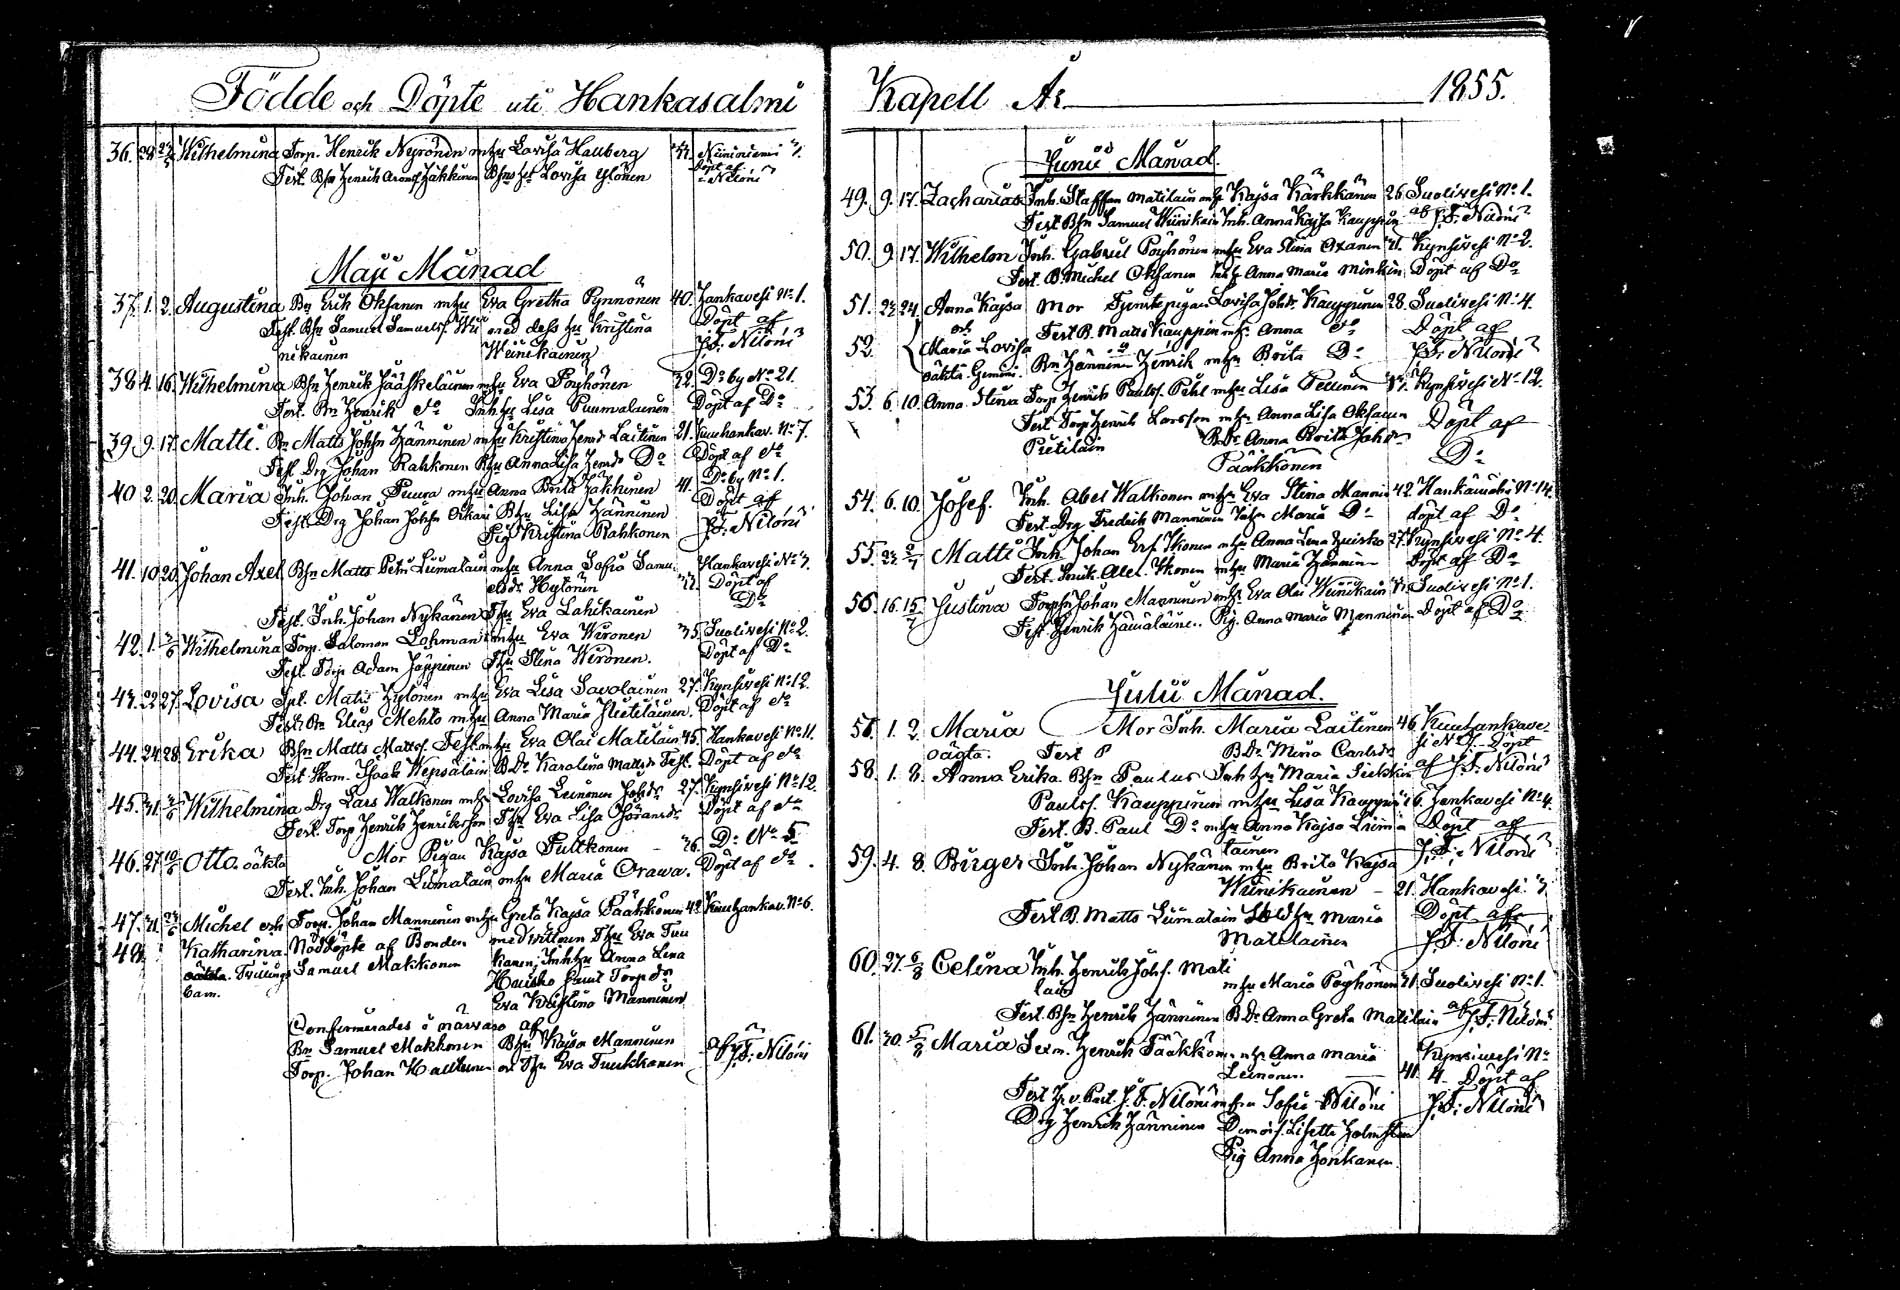 Födde och Döpte uti Hankasalmi
36. 28. Wilhelmina Torp. Henrik Nyrönen m hu Lovisa Hallberg Niininiemi
Test. Bsn Henrik Aronsf Häkkinen Bhns hu Lovisa Ylönen Döpt af Niloni
Maji Månad
37. 1. 2. Augustina Bn Erik Oksanen m hu Eva Gretha Pynnönen 40. Hankavesi No 1.
Test. Bsn Samuel Samuelsf. Wii med dess hu Kristina Döpt af
nikainen Weinikainen J.F: Niloni
38. 4. 16. Wilhelmina Bsn Henrik Jääskeläinen m hu Eva Poyhönen 32. Do by No 21.
Test. Bn Henrik do Inh hu Lisa Puumalainen Döpt af Do
39. 9. 17. Matti. Bn Matts Johsn Hänninen m hu Kristina Henrd Laitinen 21. Kuuhankav. No 7.
Test. Drg Johan Rahkonen Bhu Anna Lisa Henrd Do Döpt af do
40 2. 20. Maria Inh. Johan Puura m hu Anna Brita Häkkinen 41. Do by No 1.
Test. Drg Johan Johsn Oikari Bhu Lisa Hänninen Döpt af
Pig Kristina Rahkonen J.F: Niloni
41. 10 20. Johan Axel Bsn Matts Petri Liimatain m hu Anna Sofia Samu Hankavesi No 3.
elsdr Hytönen 32. Döpt af
Do
Test. Inh. Johan Nykänen Thu Eva Lahikainen
42. 1. Wilhelmina Torp. Salomon Lohman m hu Eva Wironen 35. Suolivesi No 2.
Test. Torp Adam Jäppinen Thu Stina Wironen. Döpt af Do
43. 22 27. Lovisa Spl. Matts Hytönen m hu Eva Lisa Savolainen 27. Kynsivesi No 12.
Test. Bn Elias Mehto m hu Anna Maria Pietiläinen. Döpt af do
44. 24 28. Erika Bsn Matts Mattsf. Tissl m hu Eva Olai Matilain 45. Hankavesi No 11.
Test Skom. Isaak Wepsäläin B.Dr Karolina Mattsdr Döpt af do
45. 31. Wilhelmina Drg Lars Walkonen m hu Lovisa Leinonen Johsdr 27. Kynsivesi No 12.
Test. Torp Henrik Henriksson Thu Eva Lisa Göransdr Döpt af do
46. 27 Otto. oäkta Mor Pigan Kajsa Pulkkonen 26. Do No 5
Test. Inh. Johan Liimatain m hu Maria Orawa. Döpt af do
47. 21. Michel och Torp. Johan Manninen m hu Greta Kajsa Pääkkönen 42 Kuuhankav. No 6.
48. Katharina. Nöddöpte af Bonden med vittnen Thu Eva Tuu
Tvilling Samuel Makkonen kanen, Inh hu Anna Lena
barn. Hauisko samt Torp dr
Eva Kristina Manninen
Confirmerades i närvaro af
Bn Samuel Makkonen Bhu Kajsa Manninen
Torp. Johan Hallinen och Thu Eva Tuukkanen af J.F: Niloni
Kapell År 1855.
Junii Månad.
49. 9. 17. Zacharias Inh. Staffan Matilain m hu Kajsa Kärkkänen 26 Suolivesi No 1.
Test Bsn Samuel Wiinikain Inh. Anna Kajsa Kauppin af J.F: Niloni
50. 9 17. Wilhelm Inh. Gabriel Pöyhönen m hu Eva Stina Oxanen 21. Kynsivesi No 2.
Test. B. Michel Oksanen Inh Anna Maria Minkin Döpt af Do
51. 22 24. Anna Kajsa Mor Tjenstepigan Lovisa Johdr Kauppinen 28. Suolivesi No 4.
och Test B. Matts Kauppinen m hu Anna do Döpt af
52. Maria Lovisa Bn Hänninen Henrik m hu Brita Do J.F: Niloni
oäkta Gemini.
53. 6. 10. Anna Stina Torp Henrik Paulsf. Pihl m hu Lisa Pellinen Kynsivesi No 12.
Test Torp Henrik Larsson m hu Anna Lisa Oksanen Döpt af
Pietiläin B.Dr Anna Brita Johdr Do
Pääkkönen
54. 6. 10. Josef. Inh. Abel Walkonen m hu Eva Stina Mannin 42. Hankamäki No 14.
Test. Drg Fredrik Manninen Inh Maria Do döpt af Do
55. 22 Matti Inh. Johan Erf. Ikonen m hu Anna Lena Hauisko 27. Kynsivesi No 4.
Test. Alex. Ikonen m hu Maria Hänninen Döpt af Do
56. 16. 15/7 Justina Torpsn Johan Manninen m hu Eva Olai Wiinikain Suolivesi No 1.
Test Henrik Hämäläine.. Pig. Anna Maria Manninen Döpt af Do
Julii Månad.
57. 1. 2. Maria Mor Inh. Maria Laitinen 46 Kuuhankave-
oägta. Test B.Dr Mina Carlsdr si No 7. Döpt
58. 1. 8. Anna Erika. Bsn Paulus Inh hu Maria af J.F: Niloni
Paulsf. Kauppinen m hu Lisa Kauppi 26. Hankavesi No 4.
Test. B. Paul Do m hu Anna Kajsa Liima Döpt af
tainen J.F: Niloni
59. 4. 8. Birger Inh. Johan Nykänen m hu Brita Kajsa
Wiinikainen 21. Hankavesi 3.
Test B. Matts Liimatain hu Maria Döpt af
Matilainen J.F: Niloni
60. 27. 6/8 Celina Inh. Henrik Johsf. Mati
lain m hu Maria Pöyhönen 31 Suolivesi No 1.
Test. Bsn Henrik Hänninen B.Dr Anna Greta Matilain af J.F: Niloni
61. 30. 5/8 Maria Henrik Pääkkön. m hu Anna Maria Kynsivesi No
Leinonen 41. 4. Döpt af
Test Hr v. Past. J.F. Niloni m fru Sofia Niloni J.F: Niloni
Drg Henrik Hänninen Demois. Lisette Holmsten
Pig Anna Honkanen